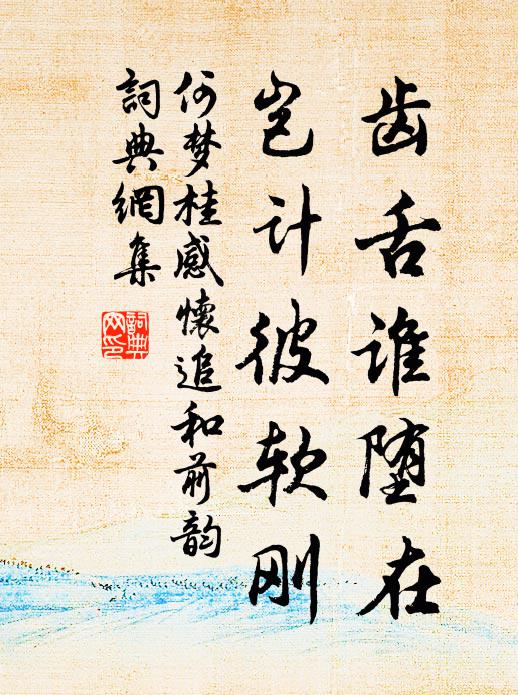 齿舌谁堕在
岂计彼软刚
何梦桂感懷追和前韵
詞典網集
詞典网印